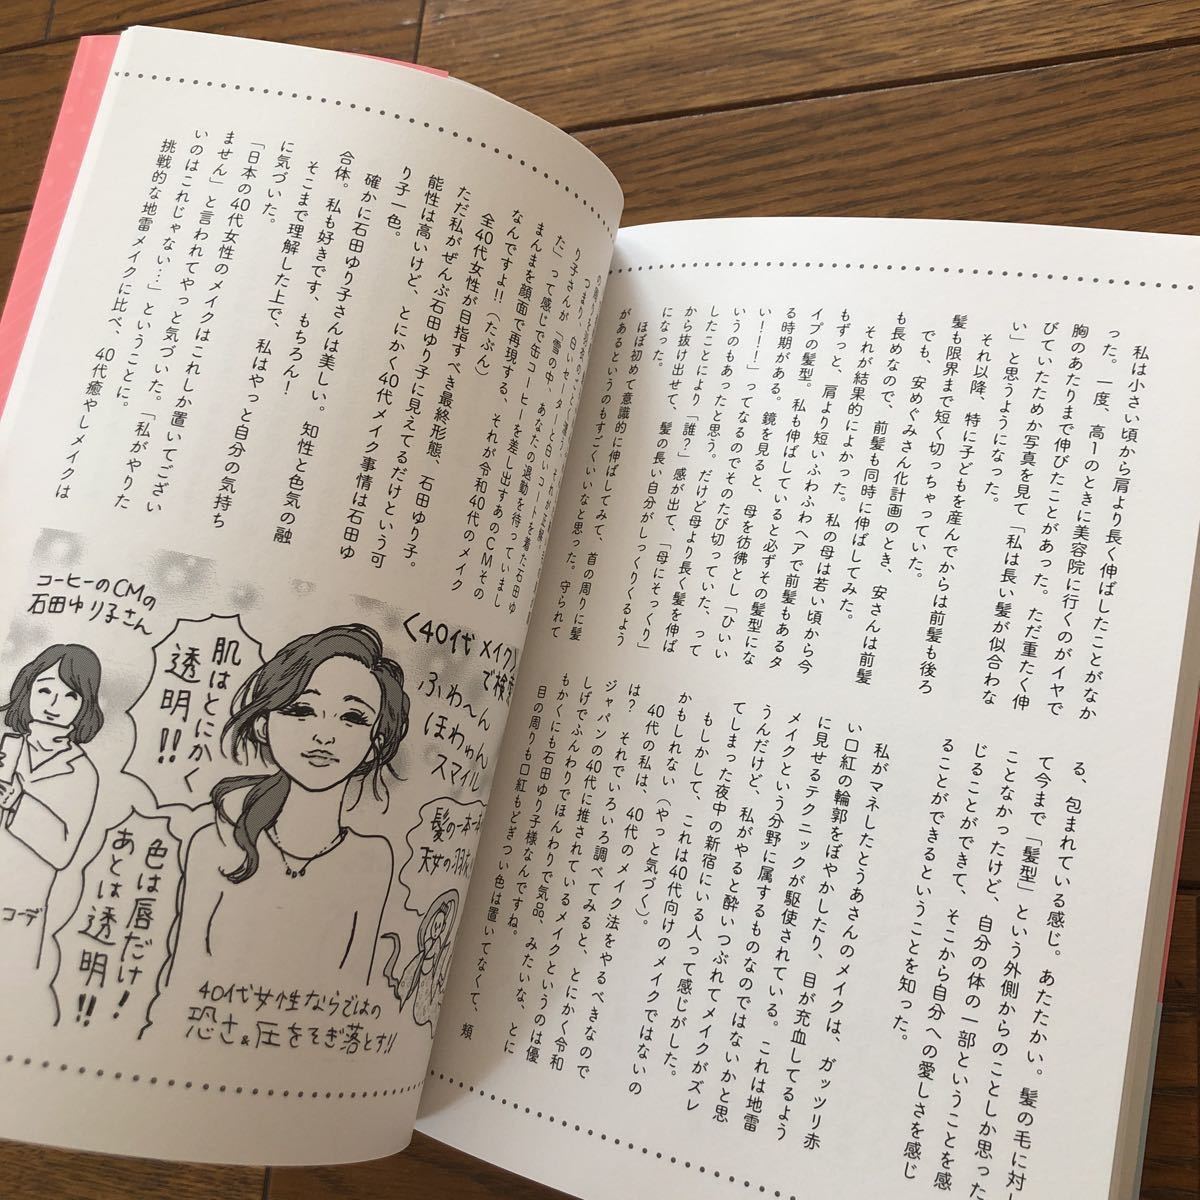 私は小さい頃から肩より長く伸ばしたことがなか
った。一度、高一のときに美容院に行くのがイヤで
胸のあたりまで伸びたことがあった。ただ重たく伸
びていたためか写真を見て「私は長い髪が似合わな
い」と思うようになった。
それ以降、特に子どもを産んでからは前髪も後ろ
髪も限界まで短く切っちゃっていた。
でも、安めぐみさん化計画のとき、安さんは前髪
も長めなので、前髪も同時に伸ばしてみた。
それが結果的によかった。私の母は若い頃から今
もずっと、肩より短いふわふわヘアで前髪もあるタ
イプの髪型。私も伸ばしていると必ずその髪型にな
る時期がある。鏡を見ると、母を彷彿とし「ひいい
い！！！」ってなるのでそのたび切っていた、って
いうのもあったと思う。だけど母より長く髪を伸ば
したことにより「誰？」感が出て、「母にそっくり」
から抜け出せて、髪の長い自分がしっくりくるよう
になった。
ほぼ初めて意識的に伸ばしてみて、首の周りに髪
があるというのもすごくいいなと思った。守られて
る、包まれている感じ。あたたかい。髪の毛に対し
て今まで「髪型」という外側からのことしか思った
ことなかったけど、自分の体の一部ということを感
じることができて、そこから自分への愛しさを感じ
ることができるということを知った。
私がマネしたとうあさんのメイクは、ガッツリ赤
い口紅の輪郭をぼやかしたり、目が充血してるよう
に見せるテクニックが駆使されている。これは地雷
メイクという分野に属するものなのではないかと思
うんだけど、私がやると酔いつぶれてメイクがズレ
てしまった夜中の新宿にいる人って感じがした。
もしかして、これは40代向けのメイクではないの
かもしれない（やっと気づく）。
40代の私は、40代のメイク法をやるべきなので
は？　それでいろいろ調べてみると、とにかく令和
ジャパンの40代に推されているメイクというのは優
しげでふんわりでほんわりで気品、みたいな、とに
もかくにも石田ゆり子様なんですね。
目の周りも口紅もどぎつい色は置いてなくて、頬
つまり、白いセーターと白いコートを着た石田ゆ
り子さんが「雪の中、あなたの退勤を待っていまし
た」って感じで缶コーヒーを差し出すあのCMその
まんまを顔面で再現する、それが令和40代のメイク
なんですよ!!（たぶん）
全40代女性が目指すべき最終形態、石田ゆり子。
ただ私がぜんぶ石田ゆり子に見えてるだけという可
能性は高いけど、とにかく40代メイク事情は石田ゆ
り子一色。
確かに石田ゆり子さんは美しい。知性と色気の融
合体。私も好きです、もちろん！
そこまで理解した上で、私はやっと自分の気持ち
に気づいた。
「日本の40代女性のメイクはこれしか置いてござい
ません」と言われてやっと気づいた。「私がやりた
いのはこれじゃない…」ということに。
挑戦的な地雷メイクに比べ、40代癒やしメイクは
〈40代 メイク〉
で検索
ふわ〜ん
ほわゅん
スマイル
髪の一本一本
天女の羽衣
肌はとにかく
透明!!
コーヒーのCMの
石田ゆり子さん
色は唇だけ！
あとは透明!!
コーデ
40代女性ならではの
恐さ&圧をそぎ落とす!!